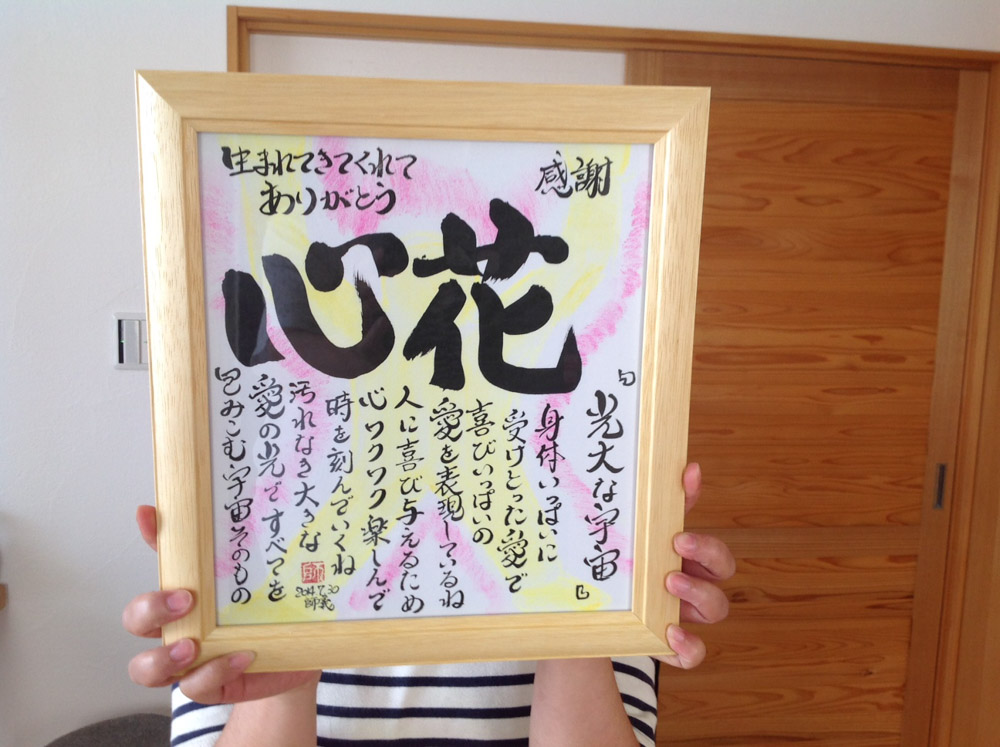 生まれてきてくれて
ありがとう
感謝
心花
「光大な宇宙」
身体いっぱいに
受けとった愛で
喜びいっぱいの
愛を表現しているね
人に喜び与えるため
心ワクワク楽しんで
時を刻んでいくね
汚れなき大きな
愛の光ですべてを
包みこむ宇宙そのもの
2014.7.30